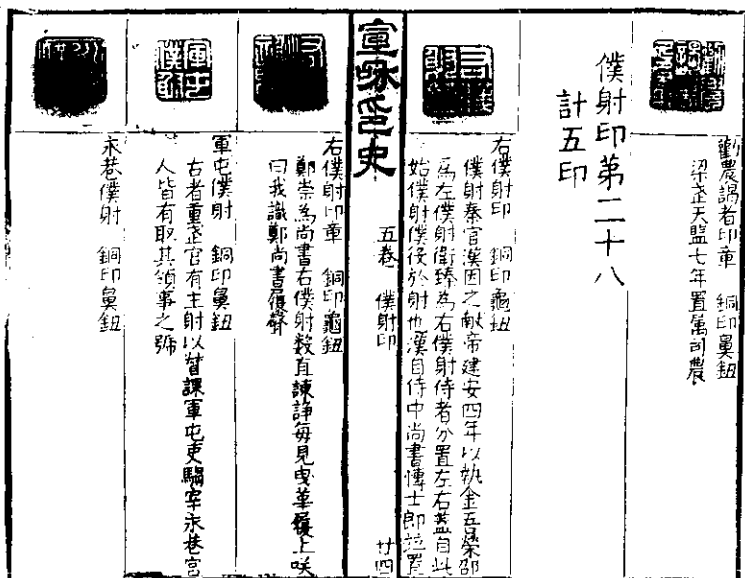 勸農謁者印章 銅印鼻鈕
梁武天監七年置屬司農
僕射印第二十八
計五印
右僕射印 銅印龜鈕
僕射秦官漢因之獻帝建安四年以執金吾榮邵
為左僕射衛臻為右僕射侍者分置左右蓋自此
始僕射僕役於射也漢自侍中尚書博士郎並置
宣咊印史
五卷 僕射印
廿四
右僕射印章 銅印龜鈕
鄭崇為尚書右僕射数直諫諍每見曳革履上咲
曰我識鄭尚書履聲
軍屯僕射 銅印鼻鈕
古者重武官有主射以督課軍屯吏騶宰永巷宫
人皆有取其領事之號
永巷僕射 銅印鼻鈕